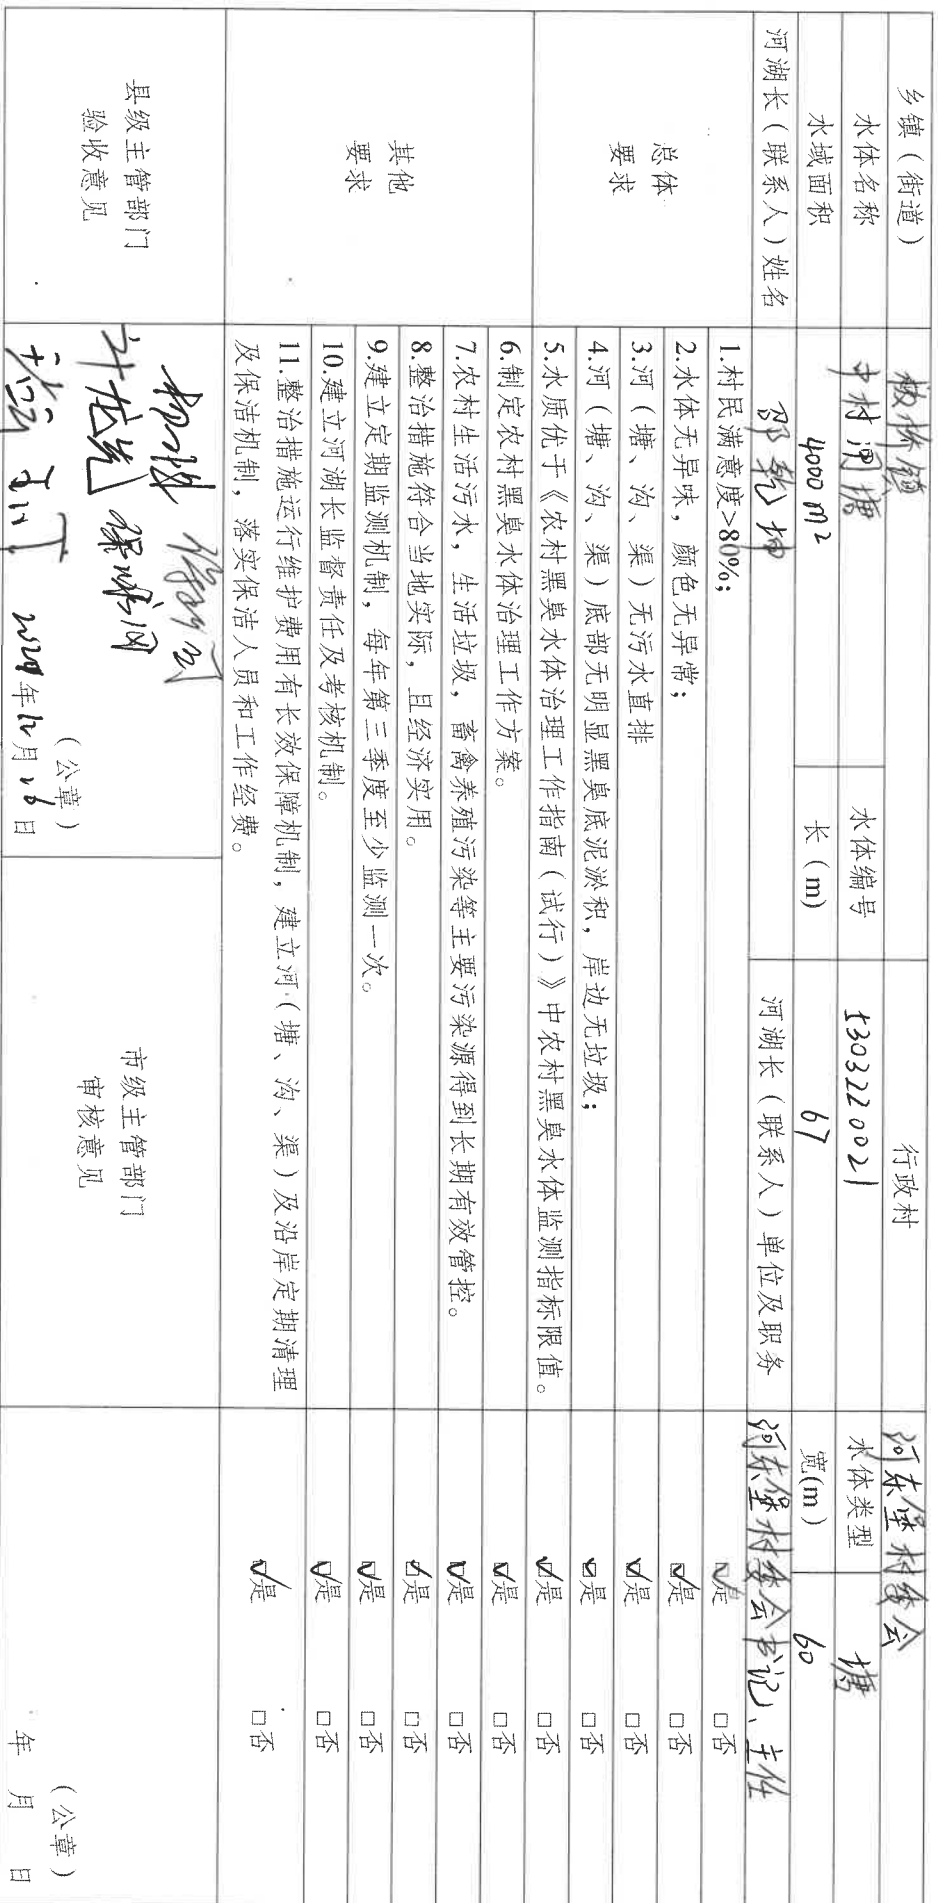 乡镇（街道） 板桥镇 行政村 河东堡村委会
水体名称 中村 塘 水体编号 5303220021 水体类型 塘
水域面积 4000m² 长（m） 67 宽(m） 60
河湖长（联系人）姓名 邵乾坤 河湖长（联系人）单位及职务 河东堡村委会书记、主任
总体
要求
1.村民满意度>80%； ☑是 □否
2.水体无异味，颜色无异常； ☑是 □否
3.河（塘、沟、渠）无污水直排 ☑是 □否
4.河（塘、沟、渠）底部无明显黑臭底泥淤积，岸边无垃圾； ☑是 □否
5.水质优于《农村黑臭水体治理工作指南（试行）》中农村黑臭水体监测指标限值。 ☑是 □否
其他
要求
6.制定农村黑臭水体治理工作方案。 ☑是 □否
7.农村生活污水，生活垃圾，畜禽养殖污染等主要污染源得到长期有效管控。 ☑是 □否
8.整治措施符合当地实际，且经济实用。 ☑是 □否
9.建立定期监测机制，每年第三季度至少监测一次。 ☑是 □否
10.建立河湖长监督责任及考核机制。 ☑是 □否
11.整治措施运行维护费用有长效保障机制，建立河（塘、沟、渠）及沿岸定期清理
及保洁机制，落实保洁人员和工作经费。 ☑是 □否
县级主管部门
验收意见
（公章）
2024年12月26日
市级主管部门
审核意见
（公章）
年 月 日